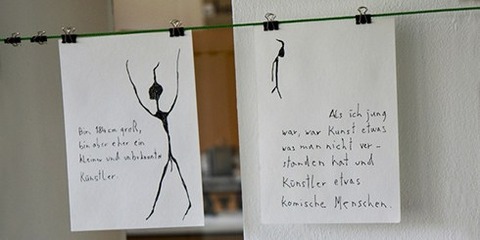 Bin 184cm groß,
bin aber eher ein
kleiner und unbekannter
Künstler.
Als ich jung
war, war Kunst etwas
was man nicht ver-
standen hat und
Künstler etwas
komische Menschen.